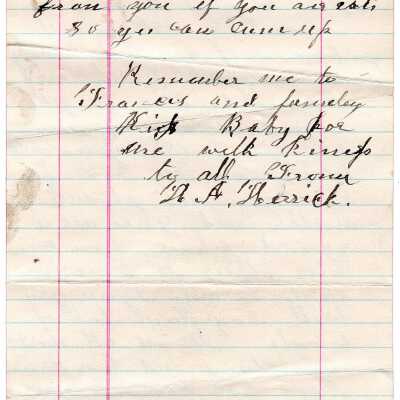 from you if you are
so you can cum up
Remember me to
Francis and famley
Kiss Baby for
me with kiness
to all From
H. A. Herrick.